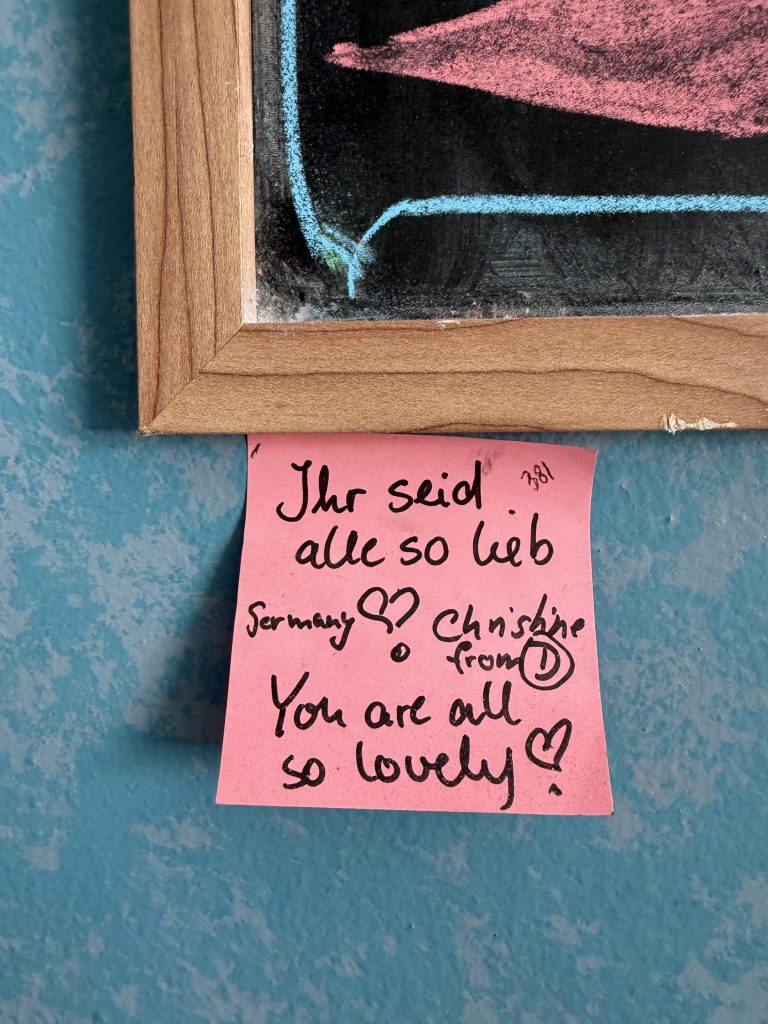 Ihr seid
381
alle so lieb
Germany ♡
Christine
from D
You are all
so lovely ♡